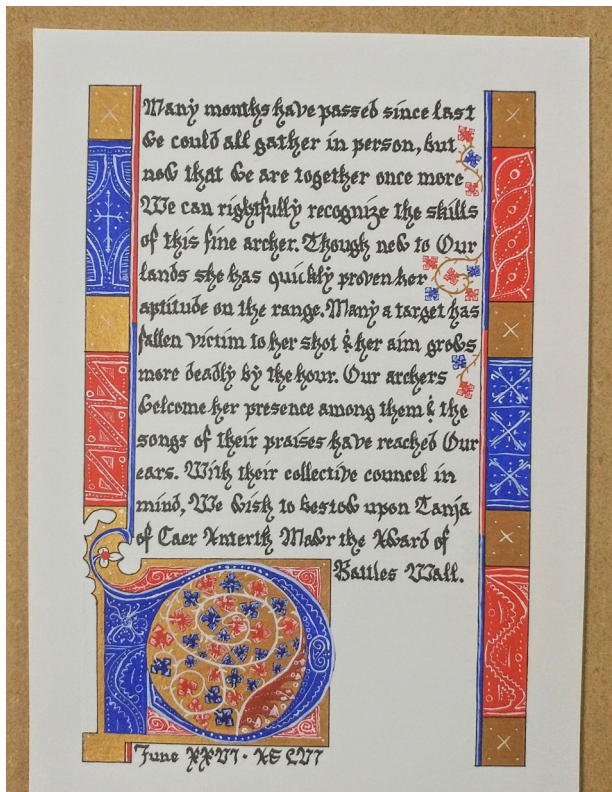 Many months have passed since last
we could all gather in person, but
now that we are together once more
We can rightfully recognize the skills
of this fine archer. Though new to Our
lands she has quickly proven her
aptitude on the range. Many a target has
fallen victim to her shot & her aim grows
more deadly by the hour. Our archers
welcome her presence among them & the
songs of their praises have reached Our
ears. With their collective councel in
mind, We wish to bestow upon Tanja
of Caer Anterth Mawr the Award of
Baules Wall.
June XXVI · AS LVI